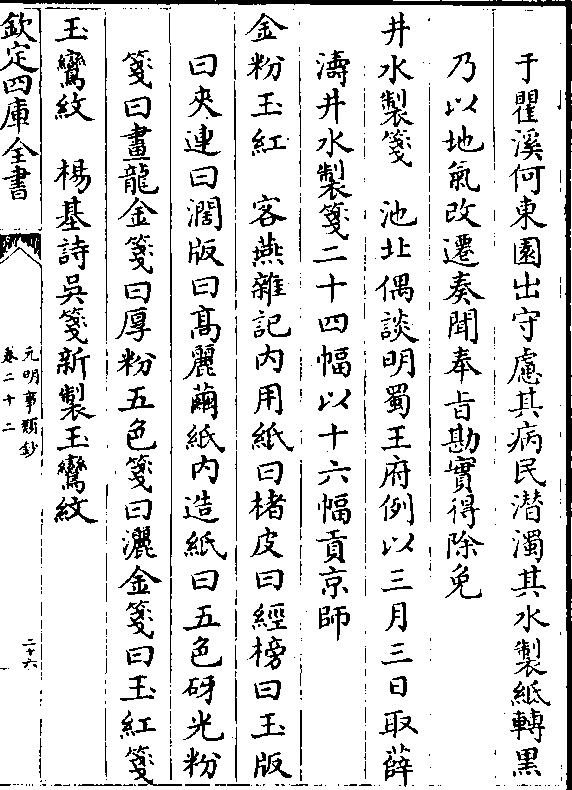 于瞿溪何東園出守慮其病民潛濁其水製紙轉黑
乃以地氣改遷奏聞奉旨勘實得除免
井水製箋　池北偶談明蜀王府例以三月三日取薛
濤井水製箋二十四幅以十六幅貢京師
金粉玉紅　客燕雜記内用紙曰楮皮曰經榜曰玉版
曰夾連曰濶版曰髙麗繭紙内造紙曰五色砑光粉
箋曰畫龍金箋曰厚粉五色箋曰灑金箋曰玉紅箋
玉鸞紋　楊基詩吳箋新製玉鸞紋
欽定四庫全書
元明事類鈔
卷二十二
二十六